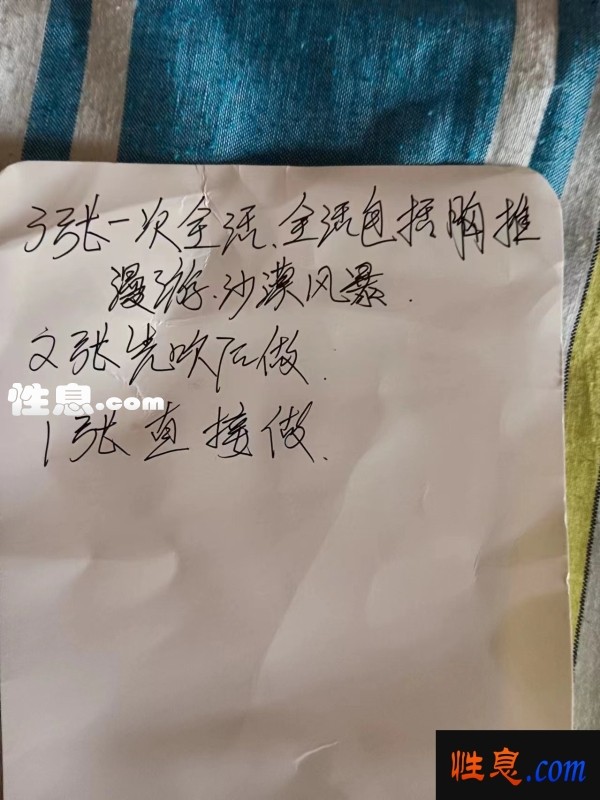 3张一次全活、全活包括胸推
漫游、沙漠风暴.
2张先吹后做.
性息.com
1张直接做.
性息.com